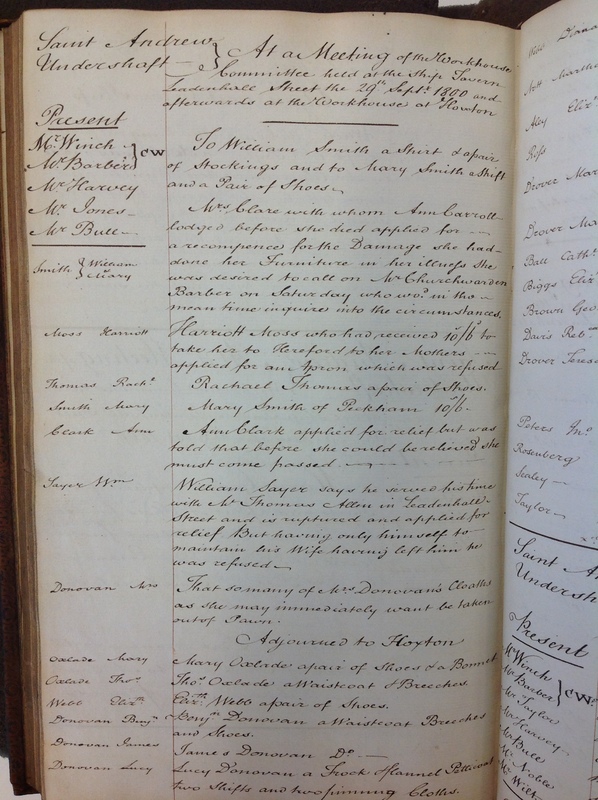 Saint Andrew
Undershaft
At a Meeting of the Workhouse
Committee held at the Ship Tavern
Leadenhall Street the 29th Septr. 1800 and
afterwards at the Workhouse at Hoxton
Present
Mr. Winch
Mr. Barber } CW
Mr. Harvey
Mr. Jones
Mr Bull
Smith { William
Mary
To William Smith a Shirt & a pair
of Stockings and to Mary Smith a Shift
and a Pair of Shoes
Mrs Clare with whom Ann Carroll
lodged before she died applied for
a recompence for the Damage she had
done her Furniture in her illness she
was desired to call on Mr Churchwarden
Barber on Saturday who wod. in the
mean time inquire into the circumstances.
Moss Harriott
Harriott Moss who had received 10/6 to
take her to Hereford to her Mothers
applied for an Apron which was refused
Thomas Rachl.
Rachael Thomas a pair of Shoes.
Smith Mary
Mary Smith of Peckham 10/6.
Clark Ann
Ann Clark applied for relief but was
told that before she could be relieved she
must come passed
Sayer Wm
William Sayer says he served his time
with Mr Thomas Allen in Leadenhall
Street and is ruptured and applied for
relief But having only himself to
maintain his Wife having left him he
was refused
Donovan Mrs
That so many of Mrs Donovan's Cloaths
as she may immediately want be taken
out of Pawn.
Adjourned to Hoxton
Oxlade Mary
Mary Oxlade a pair of Shoes & a Bonnet
Oxlade Thos.
Thos. Oxlade a Waistcoat & Breeches.
Webb Elizth
Elizth. Webb a pair of Shoes.
Donovan Benjn
Benjn Donovan a Waistcoat Breeches
and Shoes.
Donovan James
James Donovan Do
Donovan Lucy
Lucy Donovan a Frock Flannel Petticoat
two Shifts and two pinning Cloths.
Diana
Nott Martha
Aley Eliz
Ross
Drover Mar
Drover Ma
Ball Cath
Biggs Eliz
Brown Geo
Davis Reb
Drover Teres
Peters Jno
Rosenberg
Sealey
Taylor
Saint An
Undersh
Present
Mr Winch
Mr Barber } CW
Mr Taylor
Mr Harvey
Mr Bull
Mr Noble
Mr Wilt